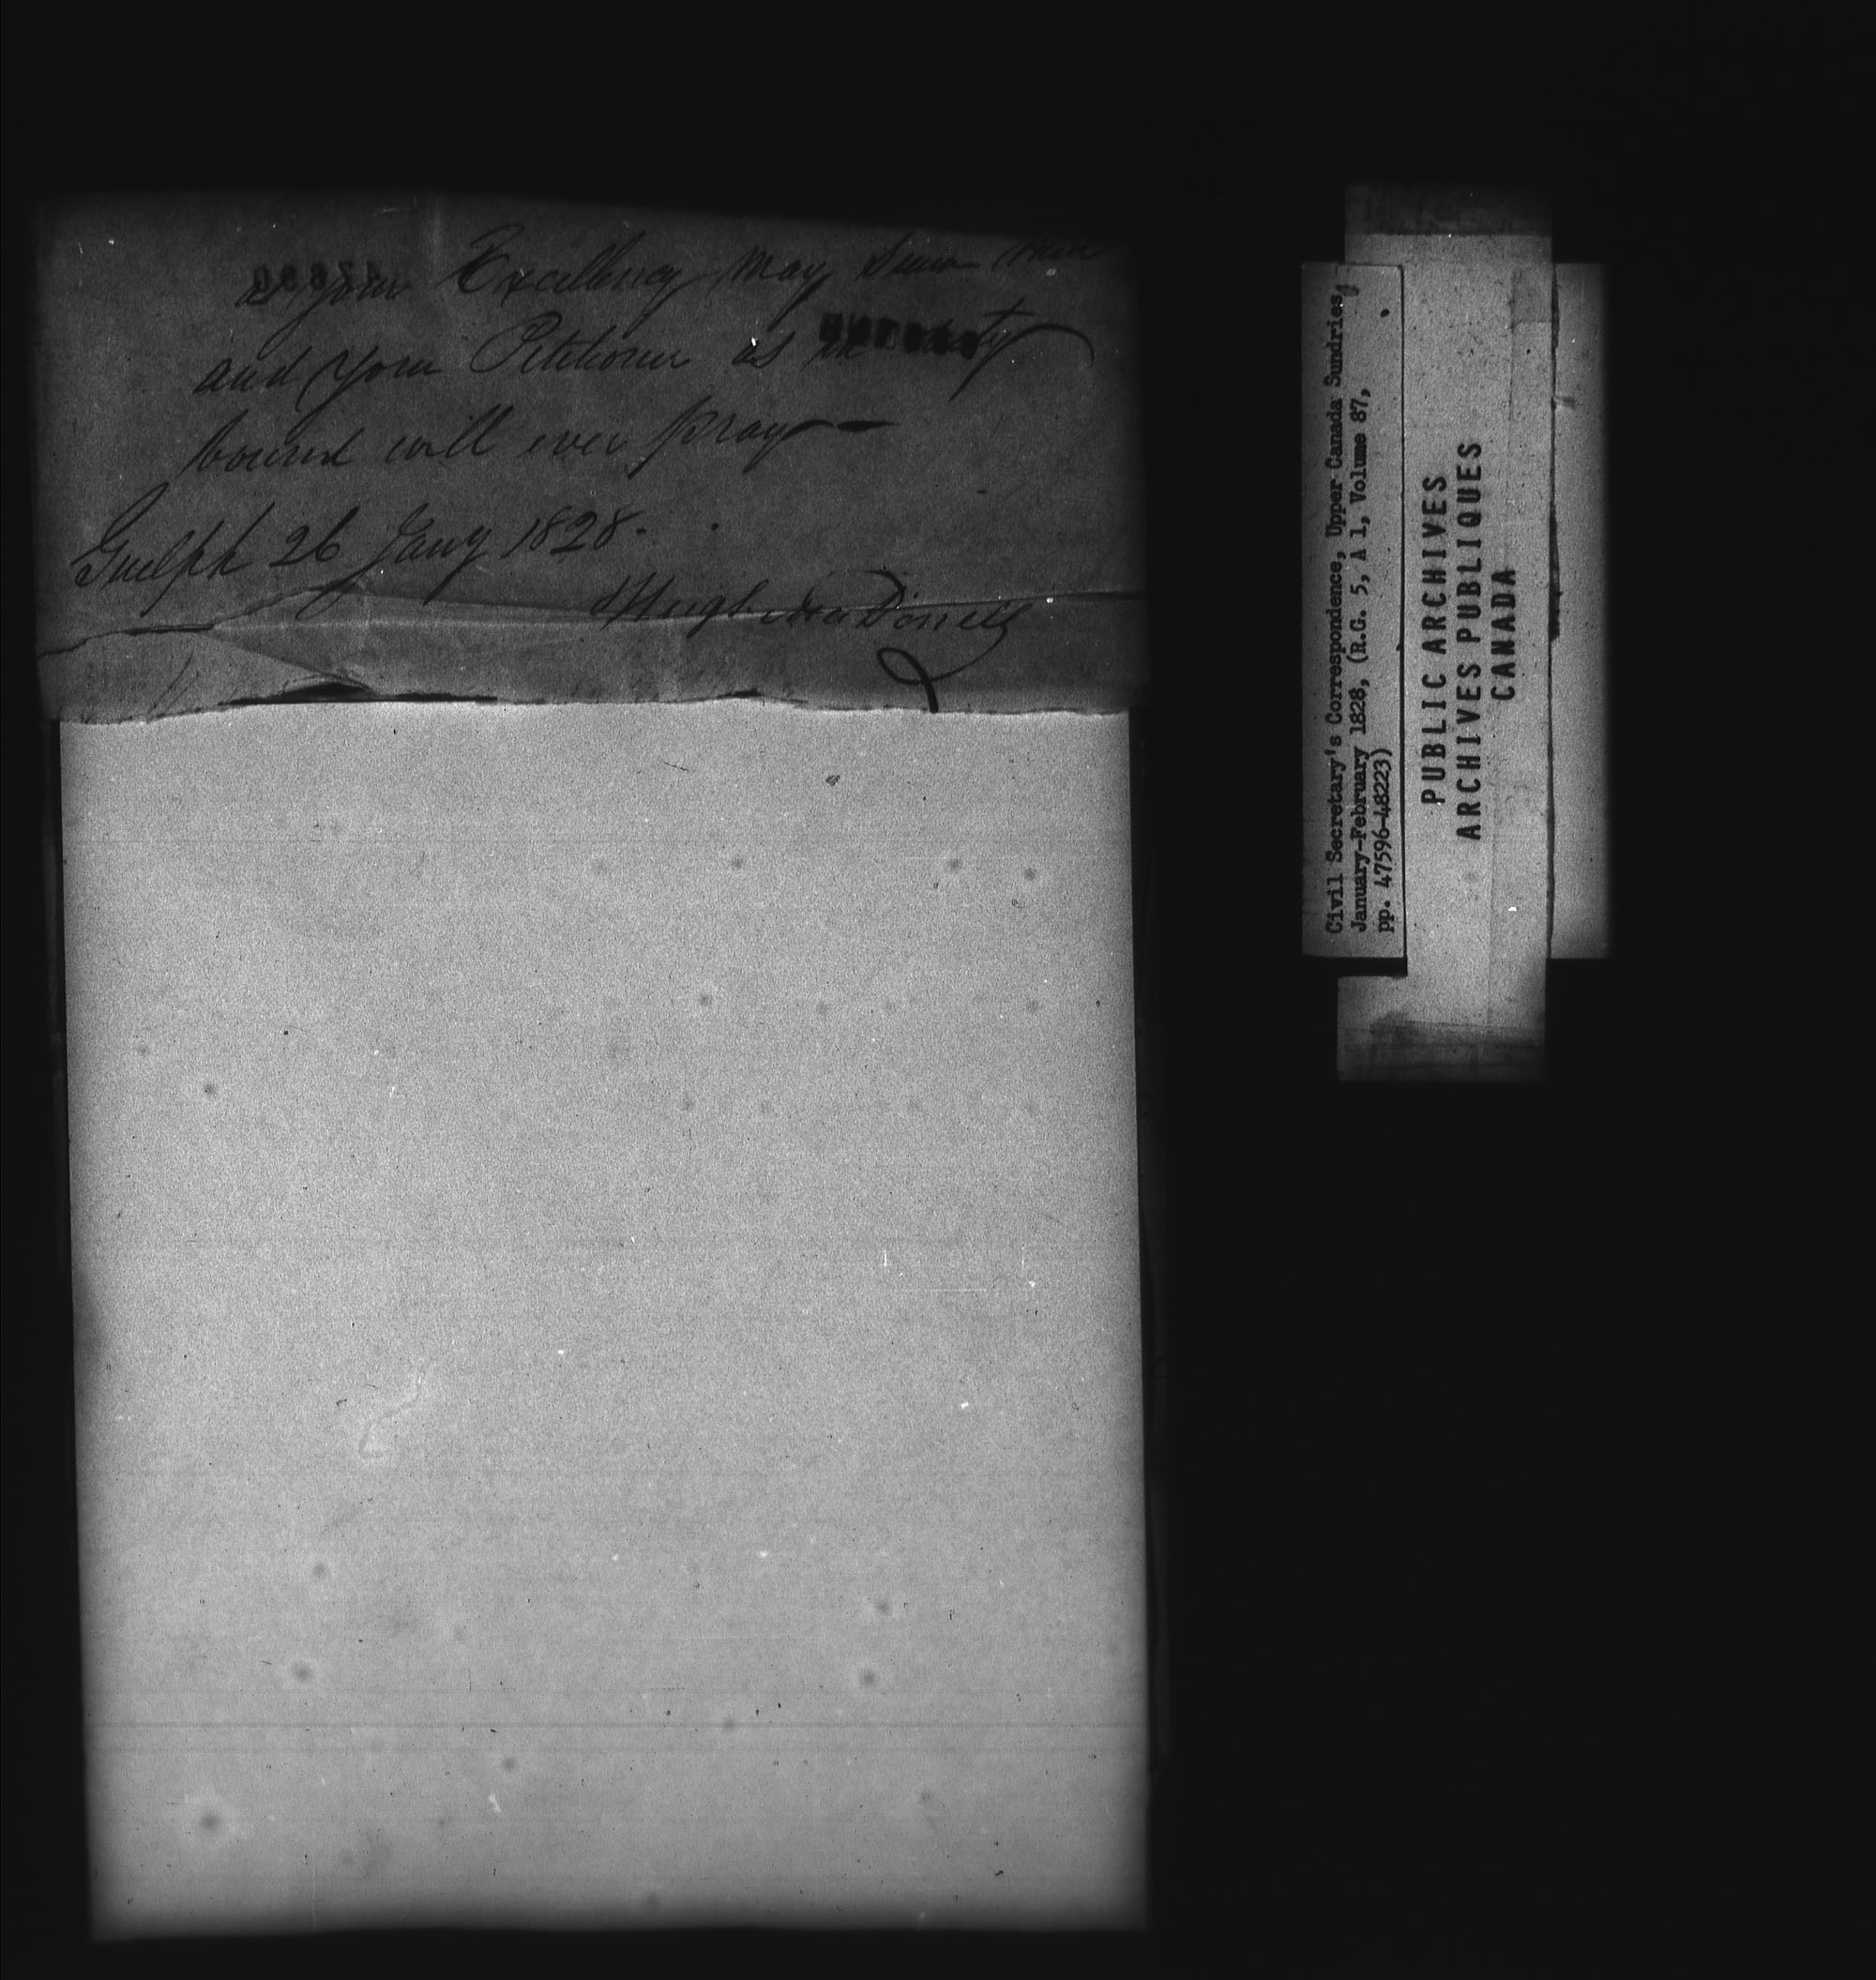 as your Excellency may seem meet
and your Petitioner as in duty
bound will ever pray —
Guelph 26 Jany 1828.
Hugh MacDonell
Civil Secretary's Correspondence, Upper Canada Sundries,
January-February 1828, (R.G. 5, A 1, Volume 87,
pp. 47596-48223)
PUBLIC ARCHIVES
ARCHIVES PUBLIQUES
CANADA